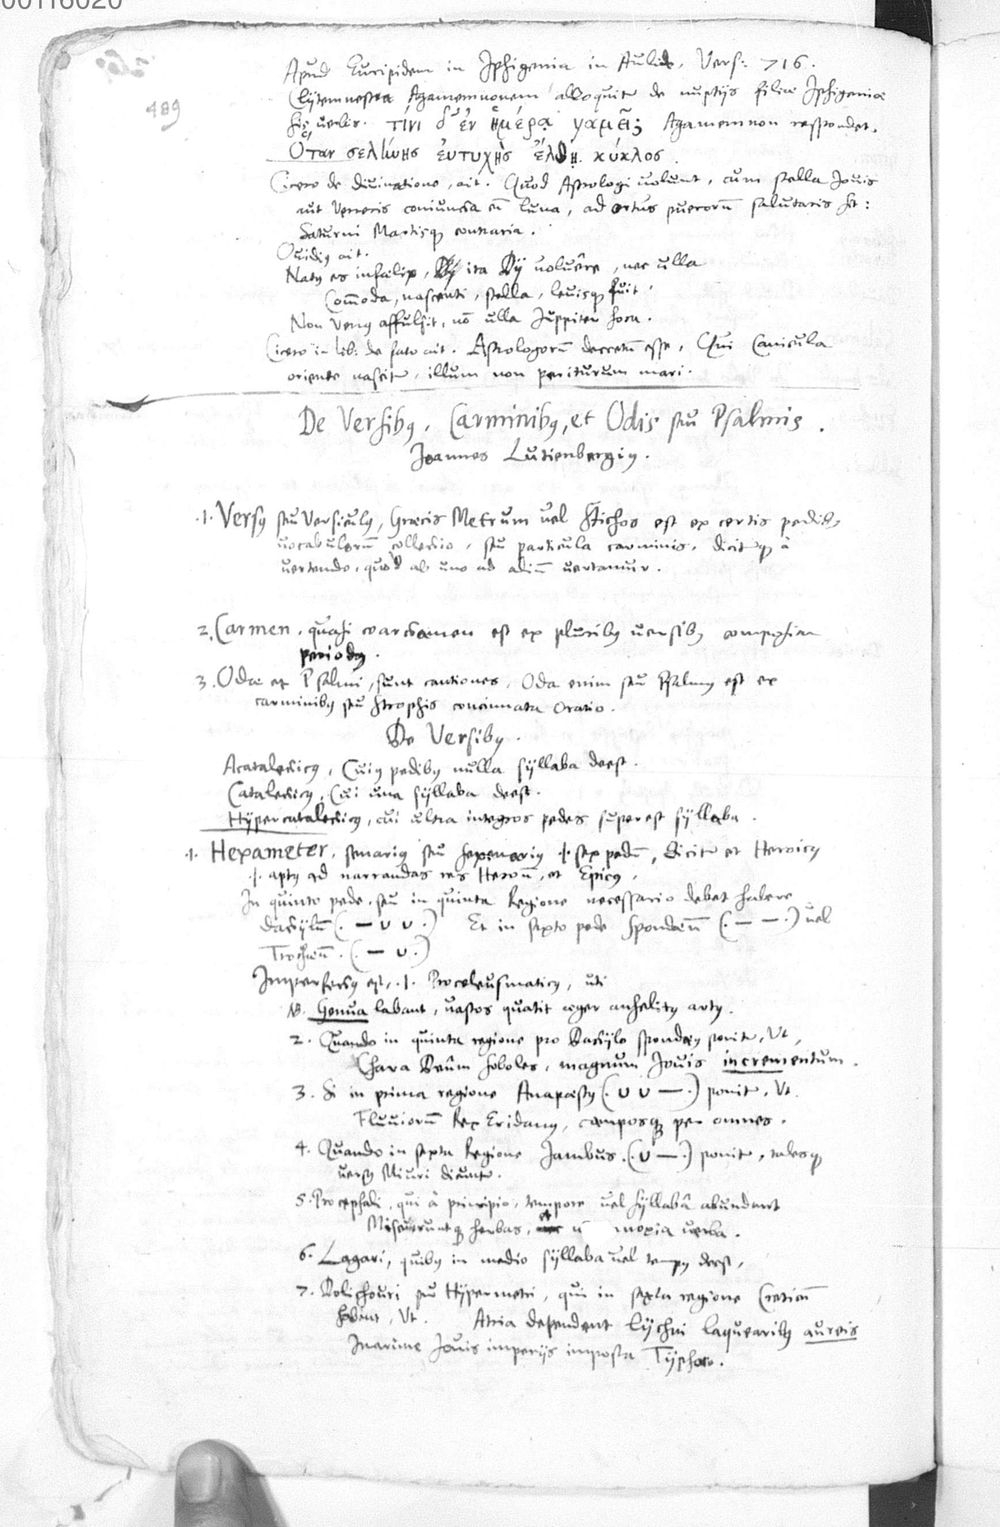 00116020
489
Apud Euripidem in Iphigenia in Aulide, Vers: 716.
Clytemnestra Agamemnonem alloquitur de nuptijs filiae Iphigeniae
his uerbis. τίνι δ' ἐν ἡμέρᾳ γαμεῖ; Agamemnon respondet.
Ὅταν σελήνης εὐτυχὴς ἔλθῃ κύκλος.
Cicero de diuinatione, ait. Quod Astrologi uolunt, cum stella Jouis
aut Veneris coniuncta cū luna, ad ortus puerorū salutaris sit:
Saturni Martisq̨ contraria.
Ouidiꝰ ait.
Natꝰ es infœlix, ita Dÿ uoluêre, nec ulla
Com̄oda, nascenti, stella, leuisq̨ fuit.
Non Venꝰ affulsit, nō ulla Juppiter hora.
Cicero in lib: de fato ait. Astrologorū decretū esse, Qui Canicula
oriente nascitur, illum non periturum mari.
De Versibꝰ, Carminibꝰ, et Odis seu Psalmis.
Joannes Lutienbergiꝰ.
.1. Versꝰ seu Versiculꝰ, Græcis Metrum uel Stichos est ex certis pedibꝰ
uocabulorū collectio, seu particula carminis, dicitq̨ à
uertendo, quod ab uno ad aliū uertamur.
2. Carmen, quasi coarctamen est ex pluribꝰ uersibꝰ
periodꝰ.
3. Odæ et Psalmi, sunt cantiones, Oda enim seu Psalmꝰ est ex
carminibꝰ seu Strophis concinnata Oratio.
De Versibꝰ.
Acatalecticꝰ, Cuiꝰ pedibꝰ nulla syllaba deest.
Catalecticꝰ, Cui una syllaba deest.
Hypercatalecticꝰ, cui ultra integros pedes superest syllaba.
.1. Hexameter, senariꝰ seu hexenariꝰ .i. sex pedū, dicitur et Heroicꝰ
.i. aptꝰ ad narrandas res Heroū, et Epicꝰ.
In quinto pede, seu in quinta Regione necessario debet habere
dactylū (. — ∪ ∪ .) Et in sexto pede Spondæū (. — — .) uel
Trochæū. (. — ∪ .)
Imperfectꝰ est, .1. Proceleusmaticꝰ, uti
Genua labant, uastos quatit æger anhelitꝰ artꝰ.
2. Quando in quinta regione pro Dactylo spondeꝰ ponitur, Vt,
Chara Deûm soboles, magnum Jouis incrementum.
3. Si in prima regione Anapæstꝰ (. ∪ ∪ — .) ponitur, Vt.
Fluuiorū Rex Eridanꝰ, camposq̨ per omnes.
4. Quando in sexta Regione Jambus. (. ∪ — .) ponitur, talesq̨
uersꝰ Miuri dicuntur.
5. Procephali, qui à principio, tempore uel syllabâ abundant
Miscueruntq̨ herbas, et nō inoxia uerba.
6. Lagari, quibꝰ in medio syllaba uel tempꝰ deest.
7. Dolichouri seu Hypermetri, qui in sexta regione Creticū
habent, Vt. Atria dependent lychni laquearibꝰ aureis
Inarime Jouis imperijs imposta Typhoeo.